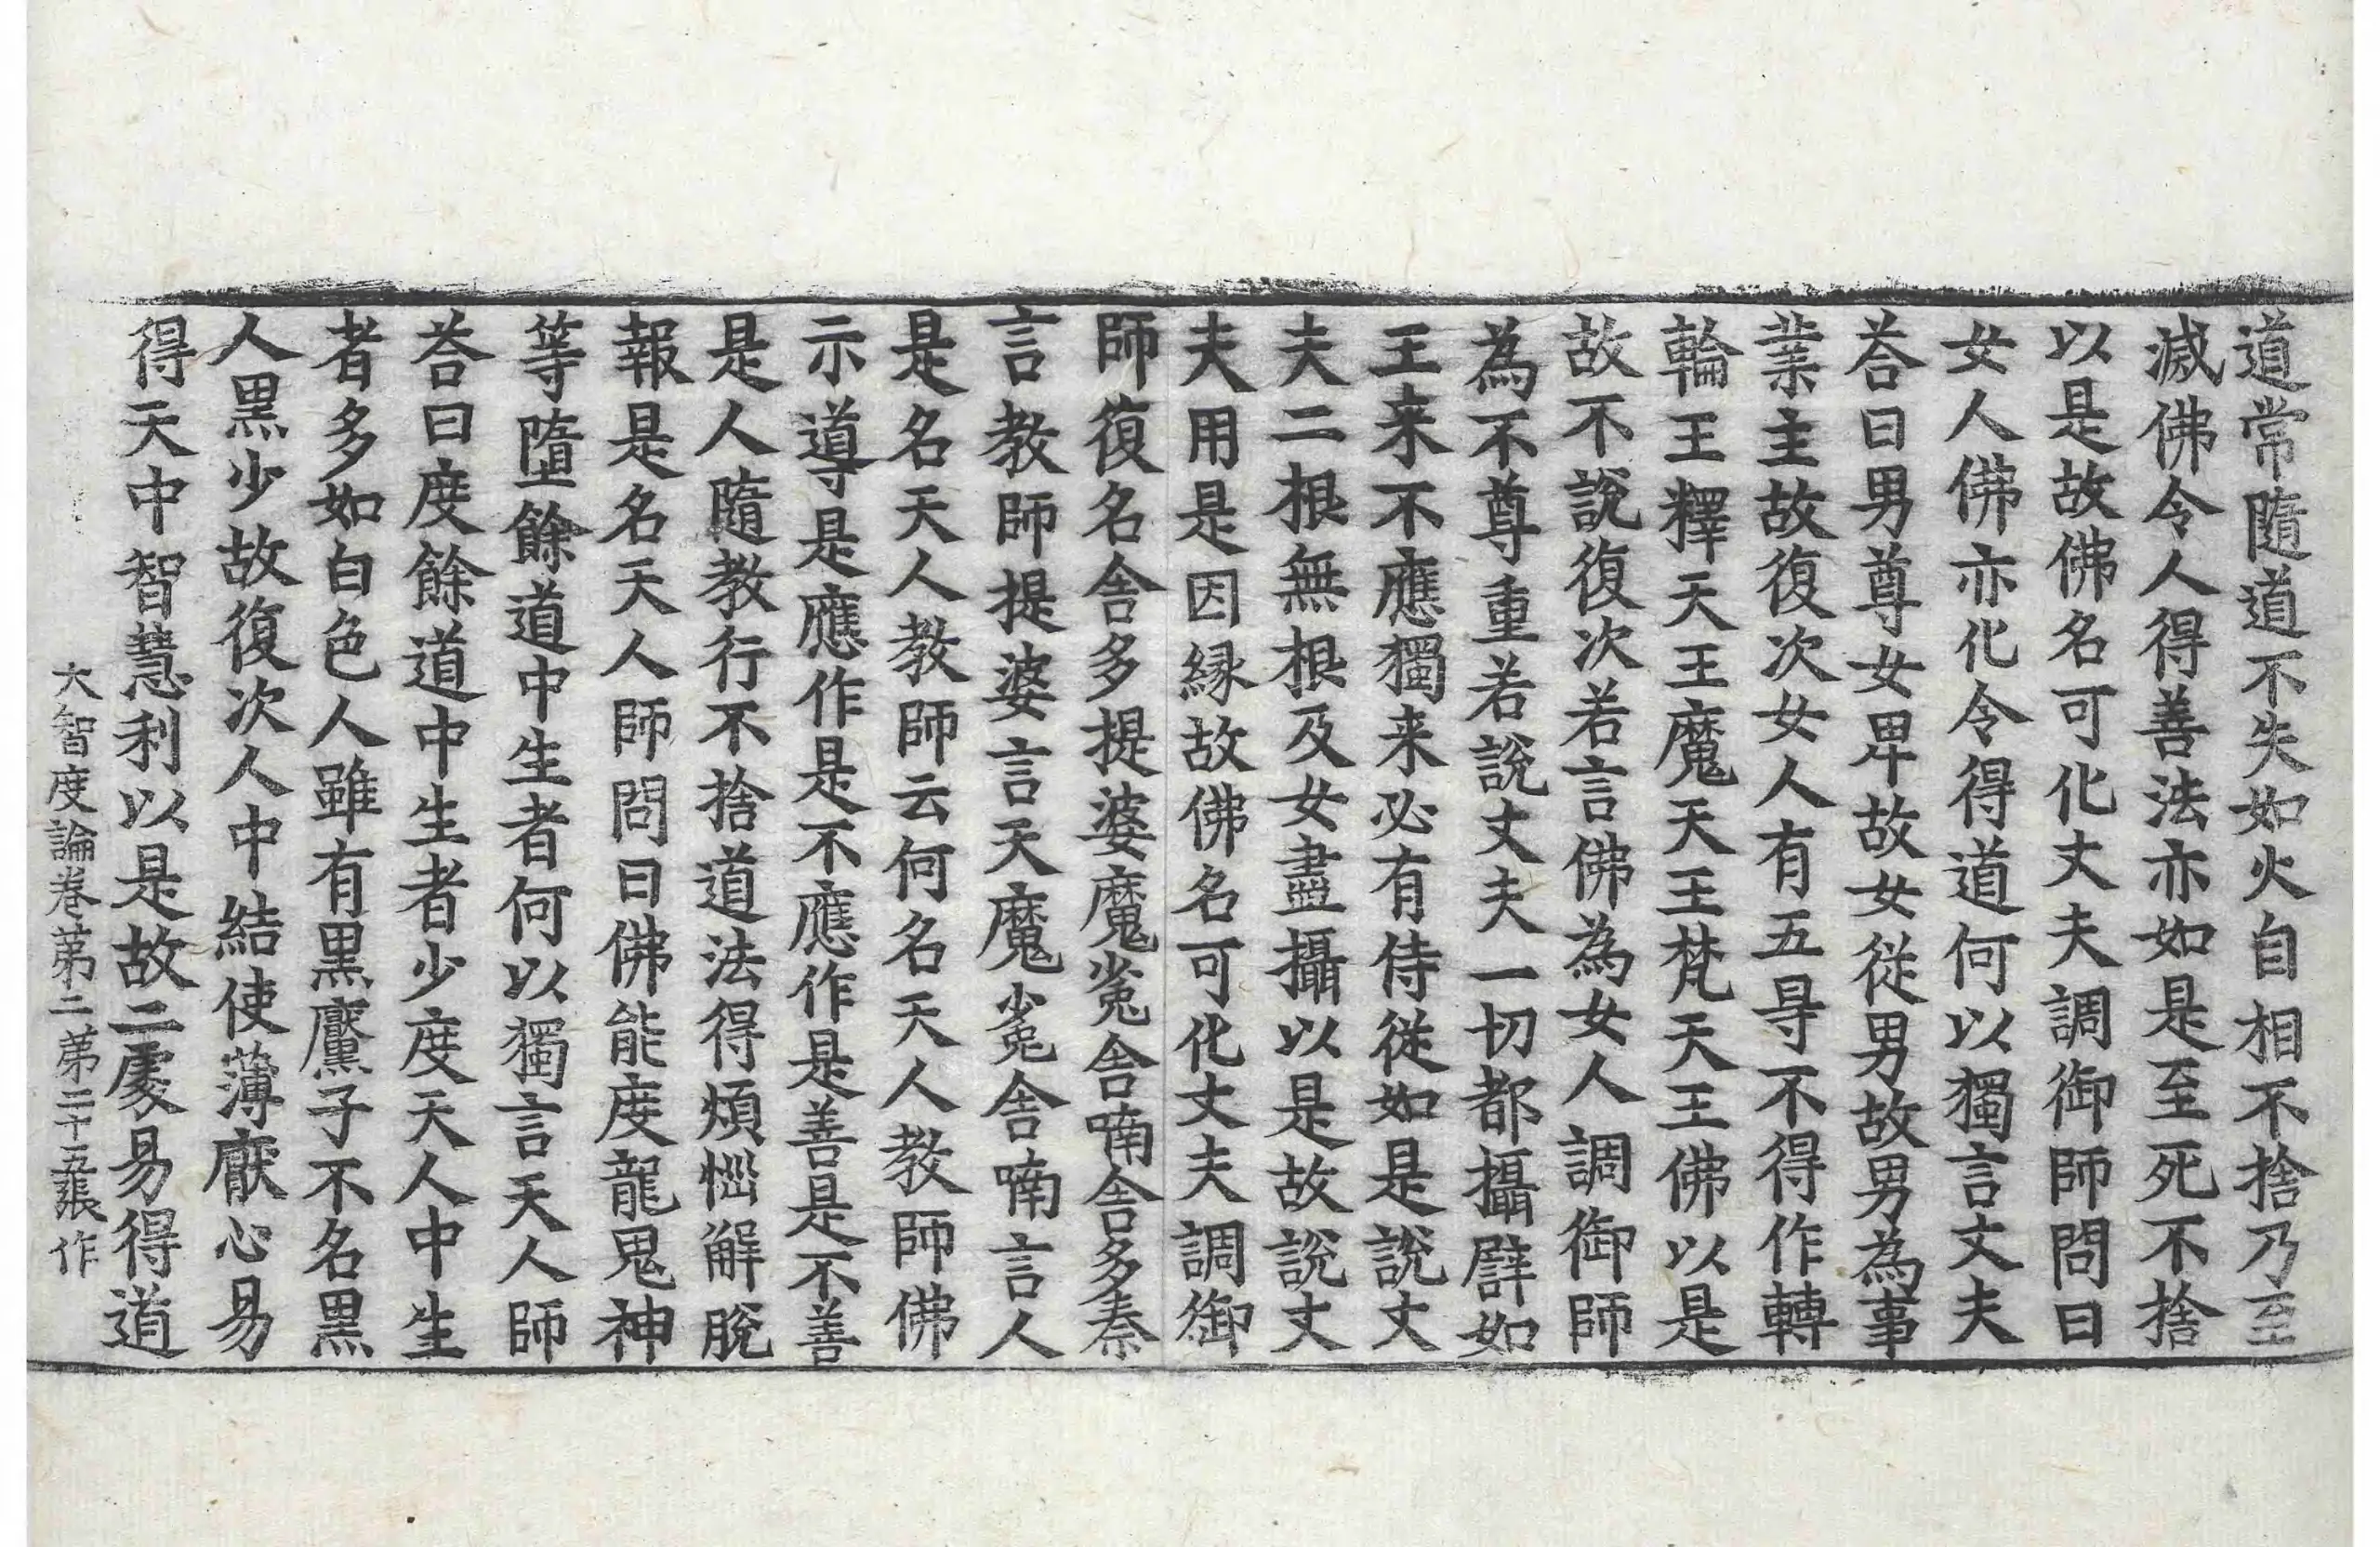 道常隨道不失如火自相不捨乃至
滅佛令人得善法亦如是至死不捨
以是故佛名可化丈夫調御師問曰
女人佛亦化令得道何以獨言丈夫
荅曰男尊女卑故女從男故男為事
業主故復次女人有五㝵不得作轉
輪王釋天王魔天王梵天王佛以是
故不說復次若言佛為女人調御師
為不尊重若說丈夫一切都攝譬如
王来不應獨来必有侍從如是說丈
夫二根無根及女盡攝以是故說丈
夫用是因縁故佛名可化丈夫調御
師復名舍多提婆魔㝹舍喃舍多秦
言教師提婆言天魔㝹舍喃言人
是名天人教師云何名天人教師佛
示導是應作是不應作是善是不善
是人隨教行不捨道法得煩惱解脫
報是名天人師問曰佛能度龍鬼神
等墮餘道中生者何以獨言天人師
荅曰度餘道中生者少度天人中生
者多如白色人雖有黒黶子不名黒
人黒少故復次人中結使薄厭心易
得天中智慧利以是故二處易得道
大智度論卷第二第二十五張作